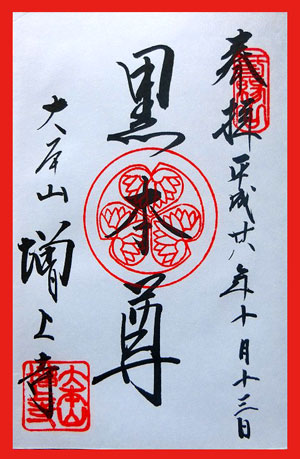 奉拝 平成廿八年十月十三日
黒本尊
大本山 増上寺
大本山
増上寺